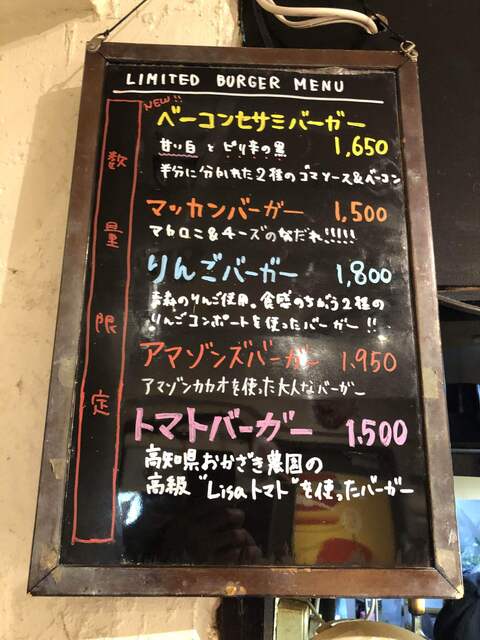 LIMITED BURGER MENU
NEW!!
数量限定
ベーコンセサミバーガー 1,650
甘い白とピリ辛の黒
半分に分かれた2種のゴマソース&ベーコン
マッカンバーガー 1,500
マカロニ&チーズのなだれ!!!!!
りんごバーガー 1,800
青森のりんご使用。食感のちがう2種の
りんごコンポートを使ったバーガー!!
アマゾンズバーガー 1.950
アマゾンカカオを使った大人なバーガー
トマトバーガー 1.500
高知県おかざき農園の
高級"Lisaトマト"を使ったバーガー